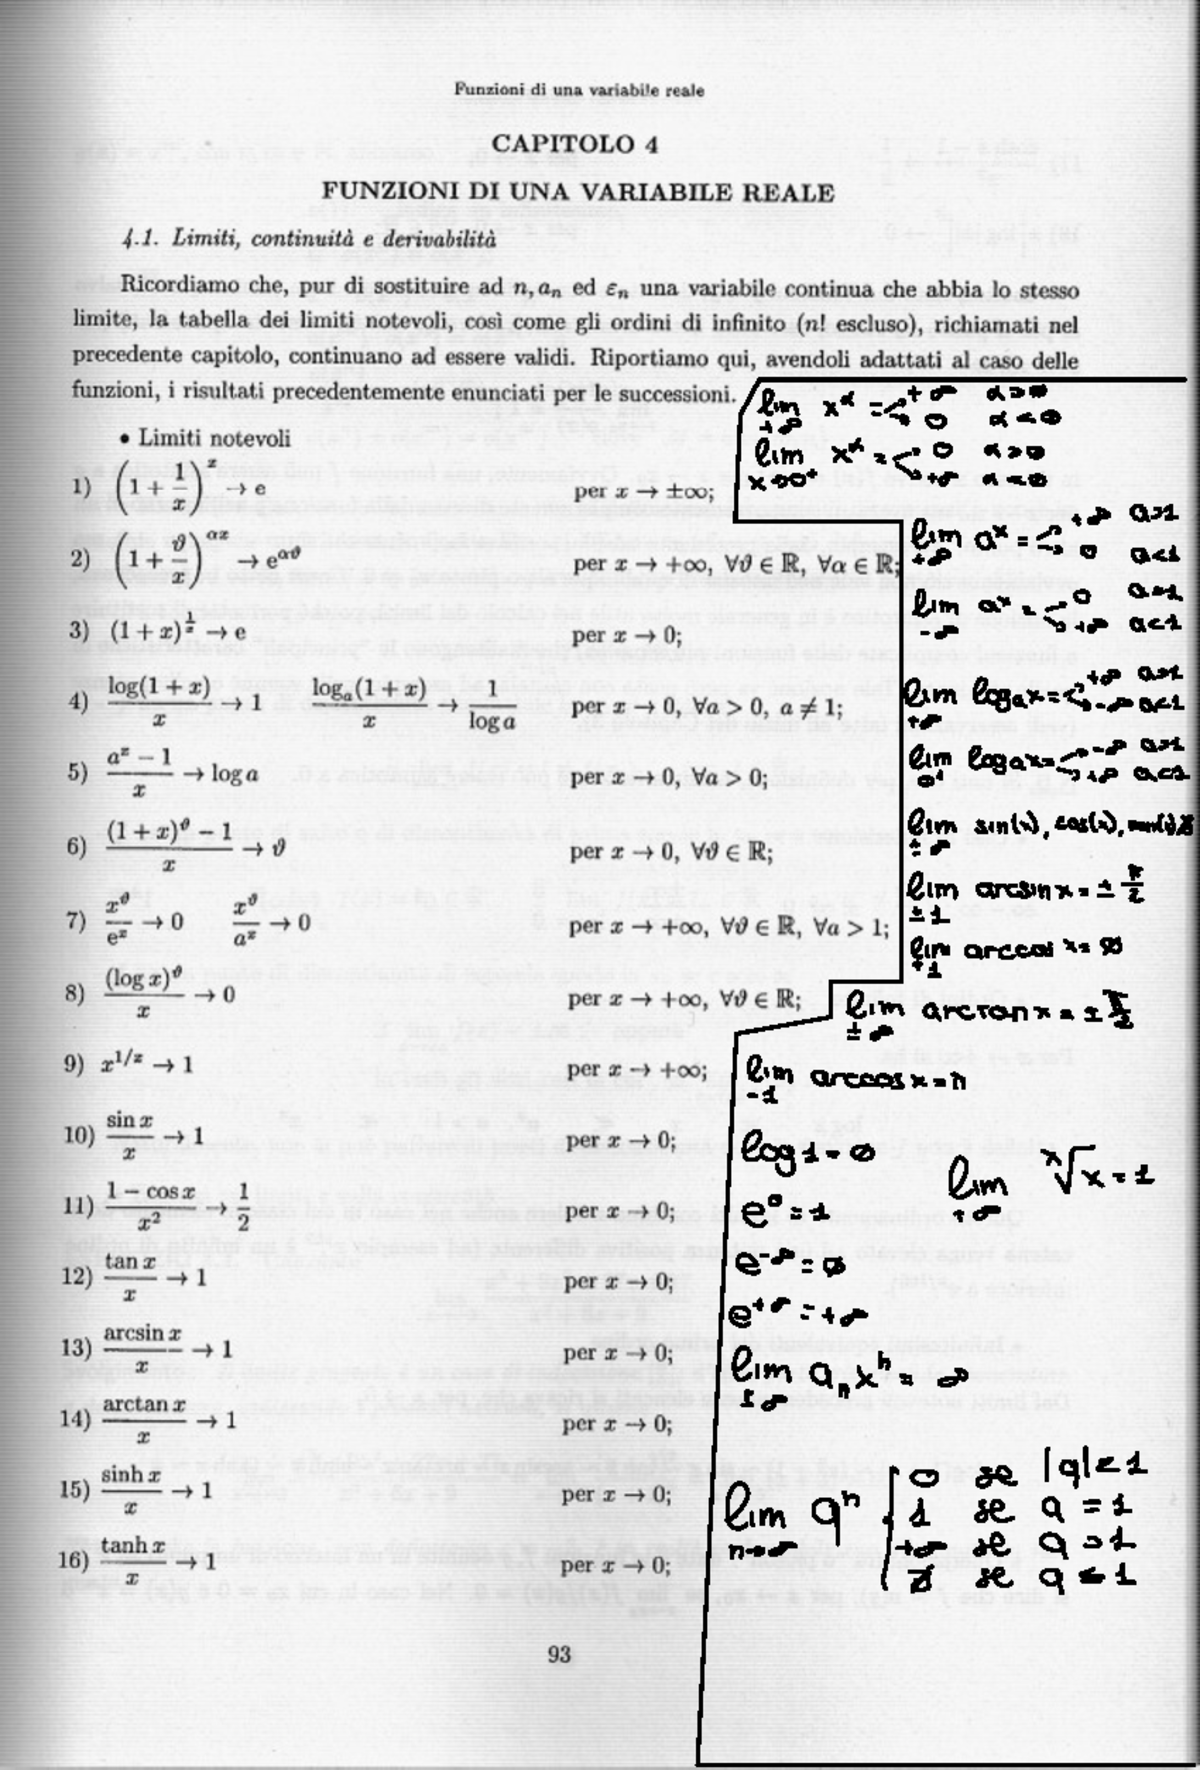 Funzioni di una variabile reale
CAPITOLO 4
FUNZIONI DI UNA VARIABILE REALE
4.1. Limiti, continuità e derivabilità
Ricordiamo che, pur di sostituire ad n, aₙ ed εₙ una variabile continua che abbia lo stesso
limite, la tabella dei limiti notevoli, così come gli ordini di infinito (n! escluso), richiamati nel
precedente capitolo, continuano ad essere validi. Riportiamo qui, avendoli adattati al caso delle
funzioni, i risultati precedentemente enunciati per le successioni.
• Limiti notevoli
1) (1 + 1/x)^x → e per x → ±∞;
2) (1 + ϑ/x)^(αx) → e^(αϑ) per x → +∞, ∀ϑ ∈ ℝ, ∀α ∈ ℝ;
3) (1 + x)^(1/x) → e per x → 0;
4) log(1 + x)/x → 1 logₐ(1 + x)/x → 1/log a per x → 0, ∀a > 0, a ≠ 1;
5) (a^x − 1)/x → log a per x → 0, ∀a > 0;
6) ((1 + x)^ϑ − 1)/x → ϑ per x → 0, ∀ϑ ∈ ℝ;
7) x^ϑ/e^x → 0 x^ϑ/a^x → 0 per x → +∞, ∀ϑ ∈ ℝ, ∀a > 1;
8) (log x)^ϑ/x → 0 per x → +∞, ∀ϑ ∈ ℝ;
9) x^(1/x) → 1 per x → +∞;
10) sin x/x → 1 per x → 0;
11) (1 − cos x)/x² → 1/2 per x → 0;
12) tan x/x → 1 per x → 0;
13) arcsin x/x → 1 per x → 0;
14) arctan x/x → 1 per x → 0;
15) sinh x/x → 1 per x → 0;
16) tanh x/x → 1 per x → 0;
93
lim +∞ x^α = +∞ α>0
0 α<0
lim x→0⁺ x^α = 0 α>0
+∞ α<0
lim +∞ a^x = +∞ a>1
0 a<1
lim -∞ a^x = 0 a>1
+∞ a<1
lim +∞ logₐx = +∞ a>1
-∞ a<1
lim 0⁺ logₐx = -∞ a>1
+∞ a<1
lim ±∞ sin(x), cos(x),
lim ±1 arcsin x = ± π/2
lim +1 arccos x = 0
lim ±∞ arctan x = ± π/2
lim -1 arccos x = π
log 1 = 0
lim +∞ ˣ√x = 1
e⁰ = 1
e^-∞ = 0
e^+∞ = +∞
lim ±∞ aₙxⁿ = ∞
lim n→∞ qⁿ
0 se |q|<1
1 se q = 1
+∞ se q >1
∄ se q ≤ 1